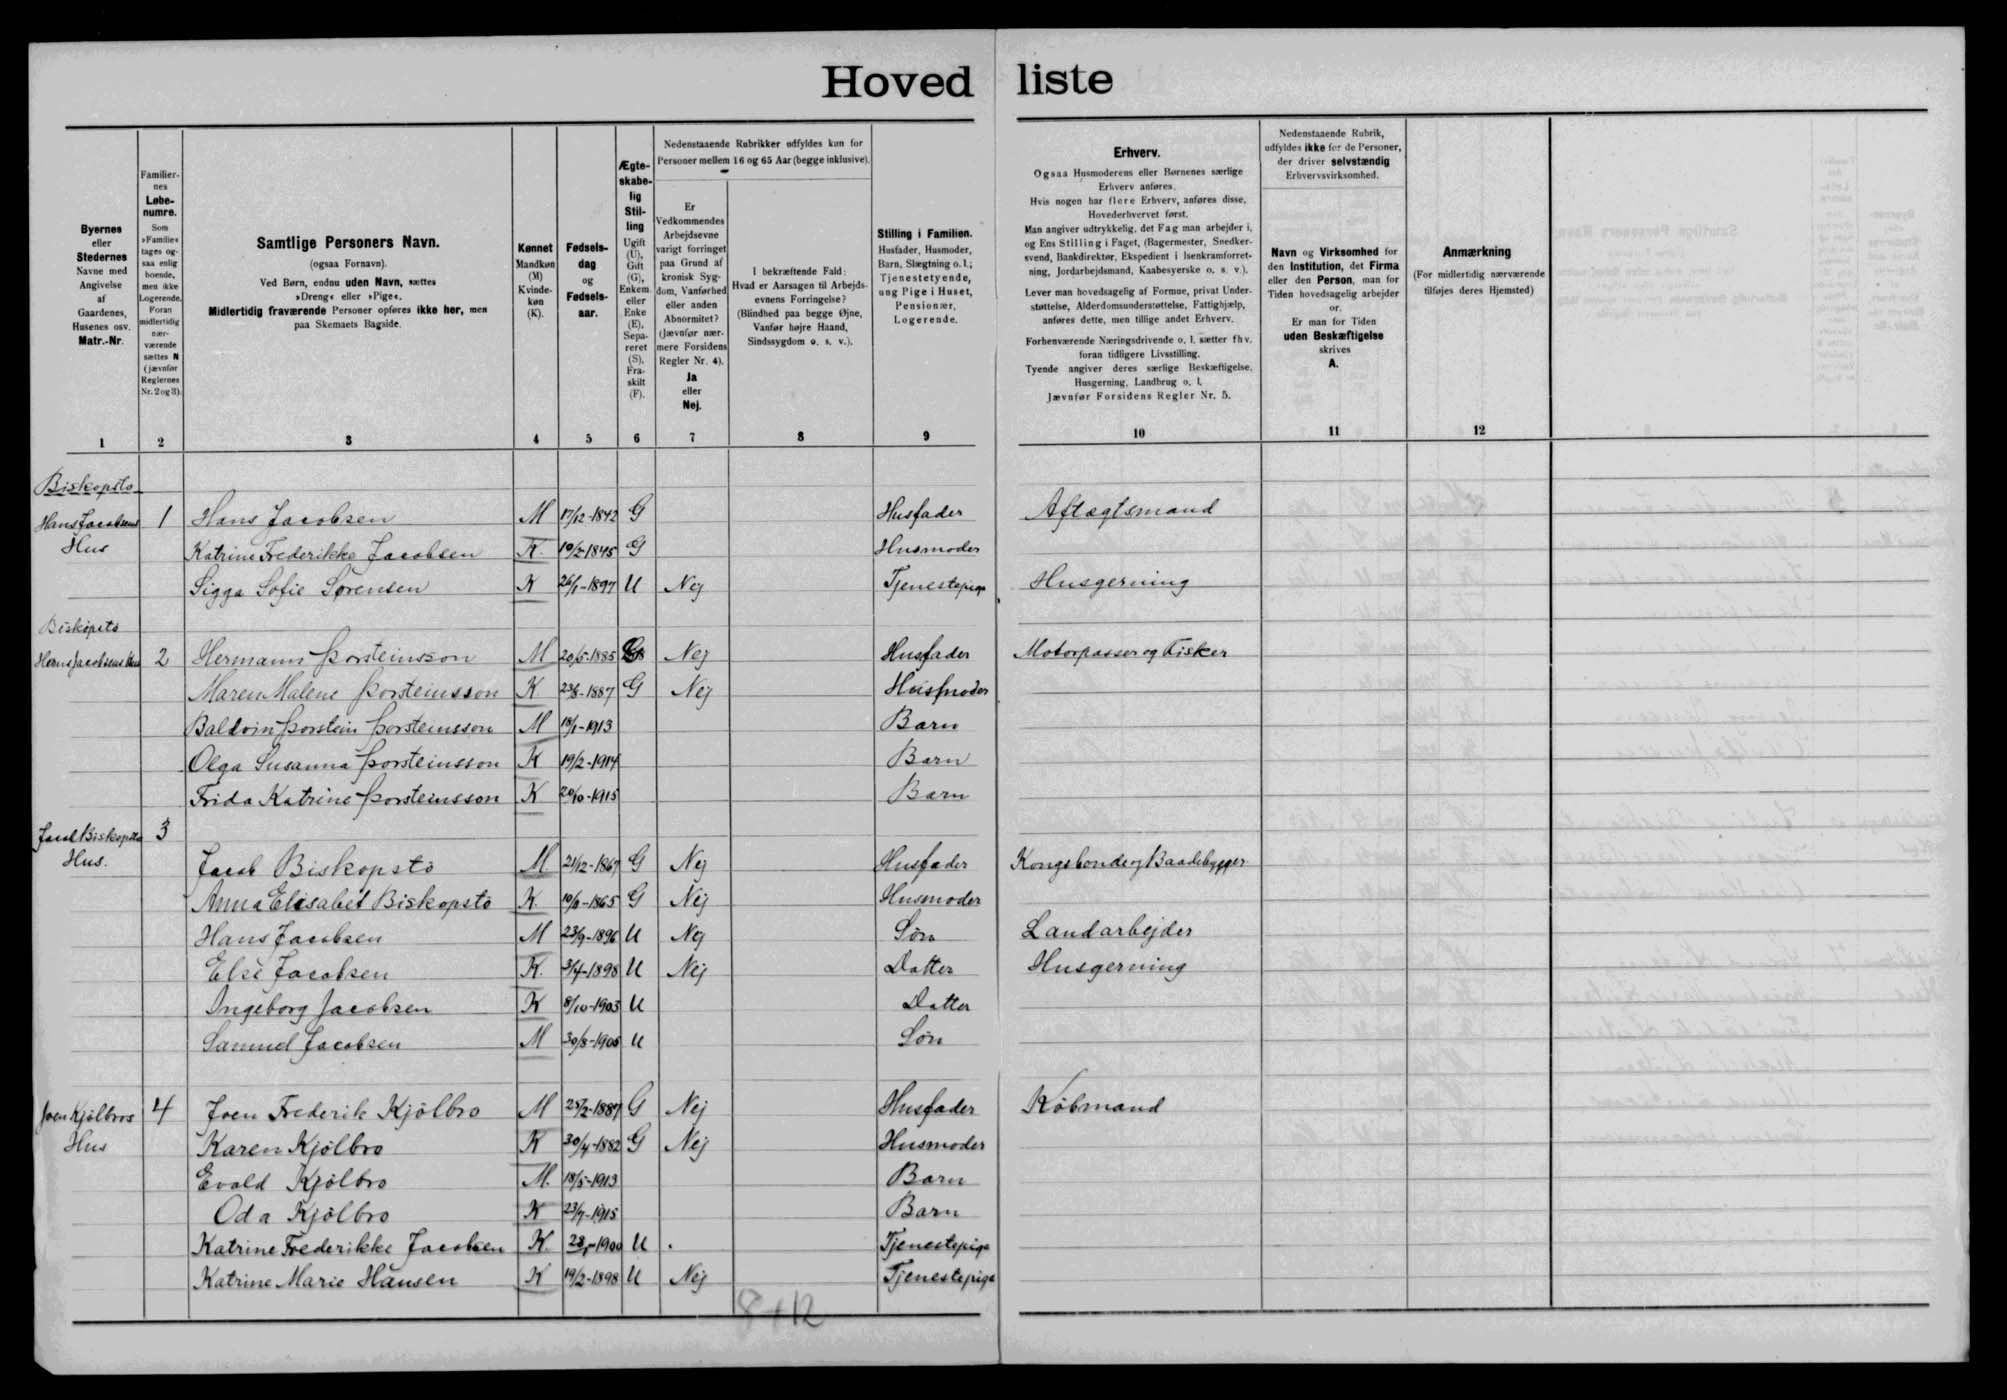 Hovedliste
Byernes
eller
Stedernes
Navne med
Angivelse
af
Gaardenes,
Husenes osv.
Matr.-Nr.
Familier-
nes
Løbe-
numre.
Som
»Familie«
tages og-
saa enlig
boende,
men ikke
Logerende.
Foran
midlertidig
nær-
værende
sættes N
(jævnfør
Reglernes
Nr. 2 og 3).
Samtlige Personers Navn.
(ogsaa Fornavn).
Ved Børn, endnu uden Navn, sættes
»Dreng« eller »Pige«.
Midlertidig fraværende Personer opføres ikke her, men
paa Skemaets Bagside.
Kønnet
Mandkøn
(M)
Kvinde-
køn
(K).
Fødsels-
dag
og
Fødsels-
aar.
Ægte-
skabe-
lig
Stil-
ling
Ugift
(U),
Gift
(G),
Enkem.
eller
Enke
(E),
Sepa-
reret
(S),
Fra-
skilt
(F).
Nedenstaaende Rubrikker udfyldes kun for
Personer mellem 16 og 65 Aar (begge inklusive).
Er
Vedkommendes
Arbejdsevne
varigt forringet
paa Grund af
kronisk Syg-
dom, Vanførhed
eller anden
Abnormitet?
(Jævnfør nær-
mere Forsidens
Regler Nr. 4).
Ja
eller
Nej.
I bekræftende Fald:
Hvad er Aarsagen til Arbejds-
evnens Forringelse?
(Blindhed paa begge Øjne,
Vanfør højre Haand,
Sindssygdom o. s. v.).
Stilling i Familien.
Husfader, Husmoder,
Barn, Slægtning o. l.;
Tjenestetyende,
ung Pige i Huset,
Pensionær,
Logerende.
Erhverv.
Ogsaa Husmoderens eller Børnenes særlige
Erhverv anføres.
Hvis nogen har flere Erhverv, anføres disse,
Hovederhvervet først.
Man angiver udtrykkelig, det Fag man arbejder i,
og Ens Stilling i Faget, (Bagermester, Snedker-
svend, Bankdirektør, Ekspedient i Isenkramforret-
ning, Jordarbejdsmand, Kaabesyerske o. s. v.).
Lever man hovedsagelig af Formue, privat Under-
støttelse, Alderdomsunderstøttelse, Fattighjælp,
anføres dette, men tillige andet Erhverv.
Forhenværende Næringsdrivende o. l. sætter fhv.
foran tidligere Livsstilling.
Tyende angiver deres særlige Beskæftigelse,
Husgerning, Landbrug o. l.
Jævnfør Forsidens Regler Nr. 5.
Nedenstaaende Rubrik,
udfyldes ikke for de Personer,
der driver selvstændig
Erhvervsvirksomhed.
Navn og Virksomhed for
den Institution, det Firma
eller den Person, man for
Tiden hovedsagelig arbejder
for.
Er man for Tiden
uden Beskæftigelse
skrives
A.
Anmærkning
(For midlertidig nærværende
tilføjes deres Hjemsted)
1 2 3 4 5 6 7 8 9 10 11 12
Biskopstö
Hans Jacobsens 1 Hans Jacobsen M 17/12-1842 G Husfader Aftægtsmand
Hus Katrine Frederikke Jacobsen K. 10/2-1845 G Husmoder
Sigga Sofie Sørensen K 26/1-1897 U Nej Tjenestepige Husgerning
Biskopstö
Hans Jacobsens Hus 2 Hermann Þorsteinsson M 20/5-1885 G Nej Husfader Motorpasser og Fisker
Maren Malene Þorsteinsson K 23/8-1887 G Nej Husmoder
Baldvin Þorstein Þorsteinsson M 18/1-1913 Barn
Olga Susanna Þorsteinsson K 19/2-1914 Barn
Frida Katrine Þorsteinsson K 20/10-1915 Barn
Jacob Biskopstö 3
Hus. Jacob Biskopstö M. 21/12-1867 G Nej Husfader Kongsbonde og Baadebygger
Anna Elisabet Biskopstö K. -1865 G Nej Husmoder
Hans Jacobsen M 23/9-1896 U Nej Søn Landarbejder
Else Jacobsen K. 3/4-1898 U Nej Datter Husgerning
Ingeborg Jacobsen K 8/10-1903 U Datter
Samuel Jacobsen M 30/8- U Søn
Joen Kjölbros 4 Joen Frederik Kjölbro M 25/2-1887 G Nej Husfader Købmand
Hus Karen Kjölbro K 30/4-1882 G Nej Husmoder
Evald Kjölbro M. 18/5-1913 Barn
Oda Kjölbro K 23/7-1915 Barn
Katrine Frederikke Jacobsen K. -1900 U Tjenestepige
Katrine Marie Hansen K 19/2-1898 U Nej Tjenestepige
8+12